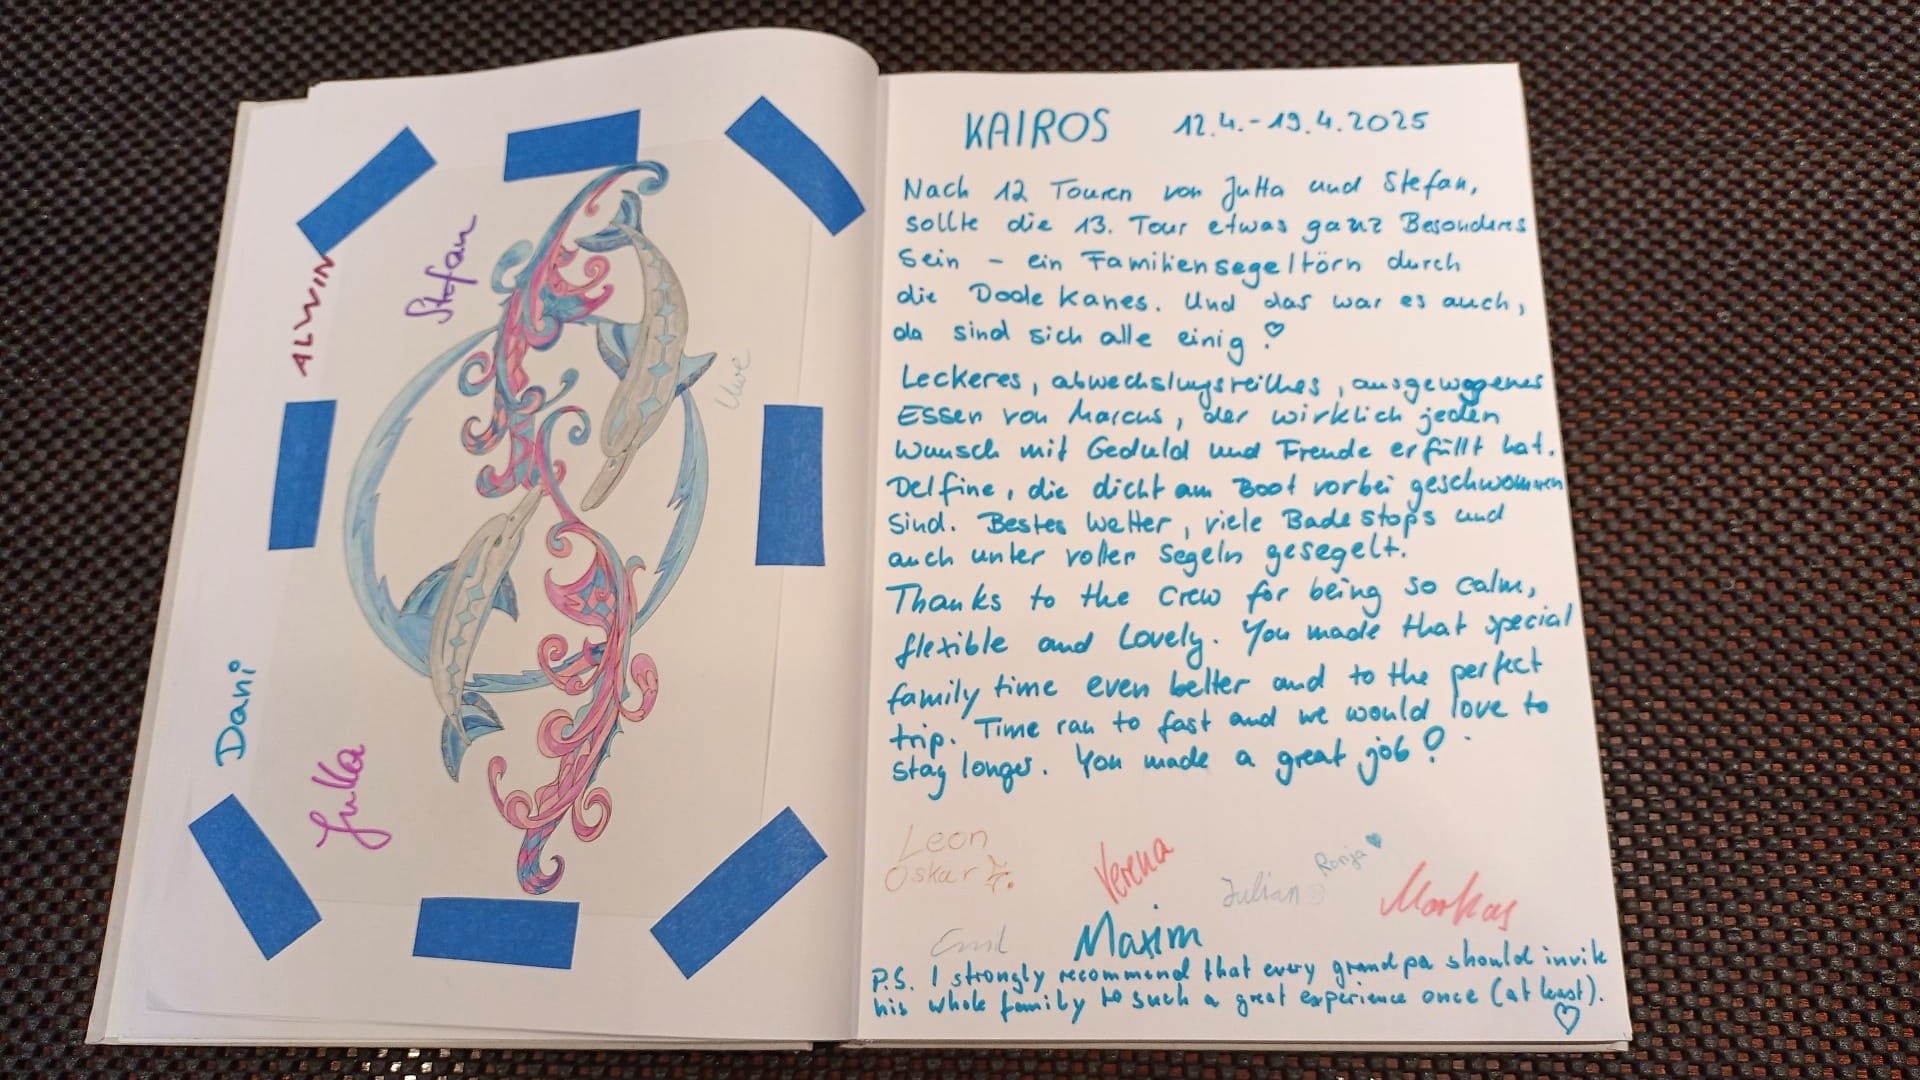 ALWIN
Stefan
Uwe
Dani
Jutta
KAIROS 12.4.-19.4.2025
Nach 12 Touren von Jutta und Stefan,
sollte die 13. Tour etwas ganz Besonderes
sein - ein Familiensegeltörn durch
die Dodekanes. Und das war es auch,
da sind sich alle einig!
Leckeres, abwechslungsreiches, ausgewogenes
Essen von Marcus, der wirklich jeden
Wunsch mit Geduld und Freude erfüllt hat.
Delfine, die dicht am Boot vorbei geschwommen
sind. Bestes Wetter, viele Badestops und
auch unter voller Segeln gesegelt.
Thanks to the crew for being so calm,
flexible and lovely. You made that special
family time even better and to the perfect
trip. Time ran to fast and we would love to
stay longer. You made a great job!
Leon
Oskar
Verena
Julian
Ronja
Markus
Emil
Maxim
P.S. I strongly recommend that every grandpa should invite
his whole family to such a great experience once (at least).